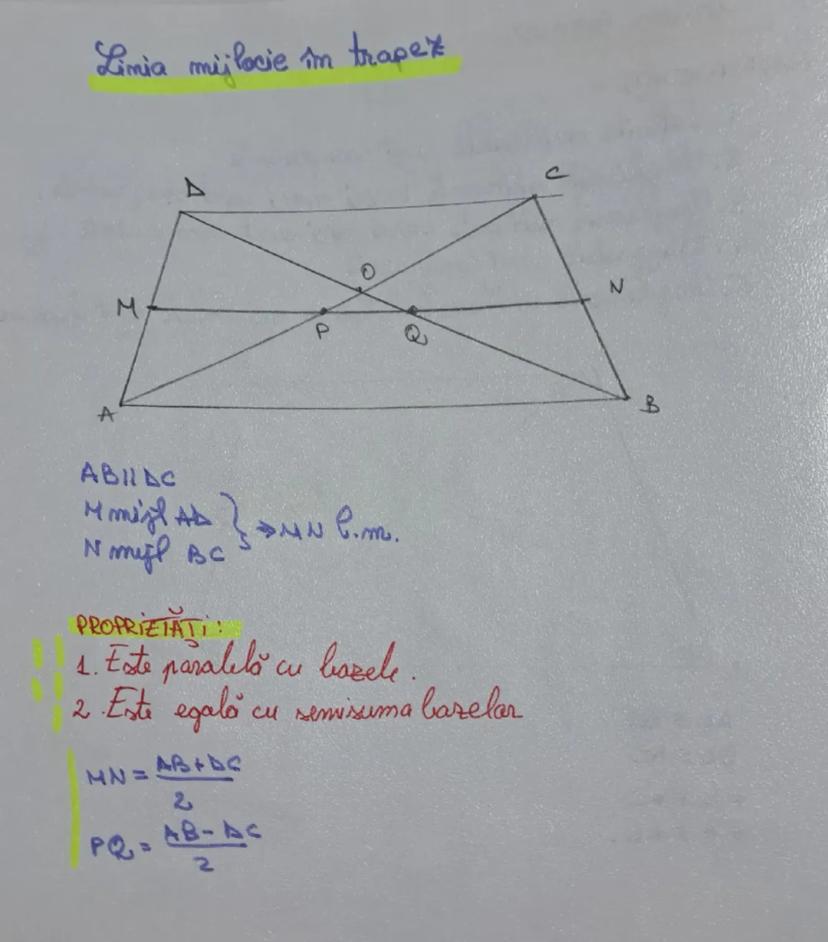 Linia mijlocie în trapez
D
C
O
M
N
P
Q
A
B
AB || DC
M mijl AD
N mijl BC
} ⇒ MN l.m.
PROPRIETĂȚI:
1. Este paralelă cu bazele.
2. Este egală cu semisuma bazelor
MN = AB + DC / 2
PQ = AB - DC / 2